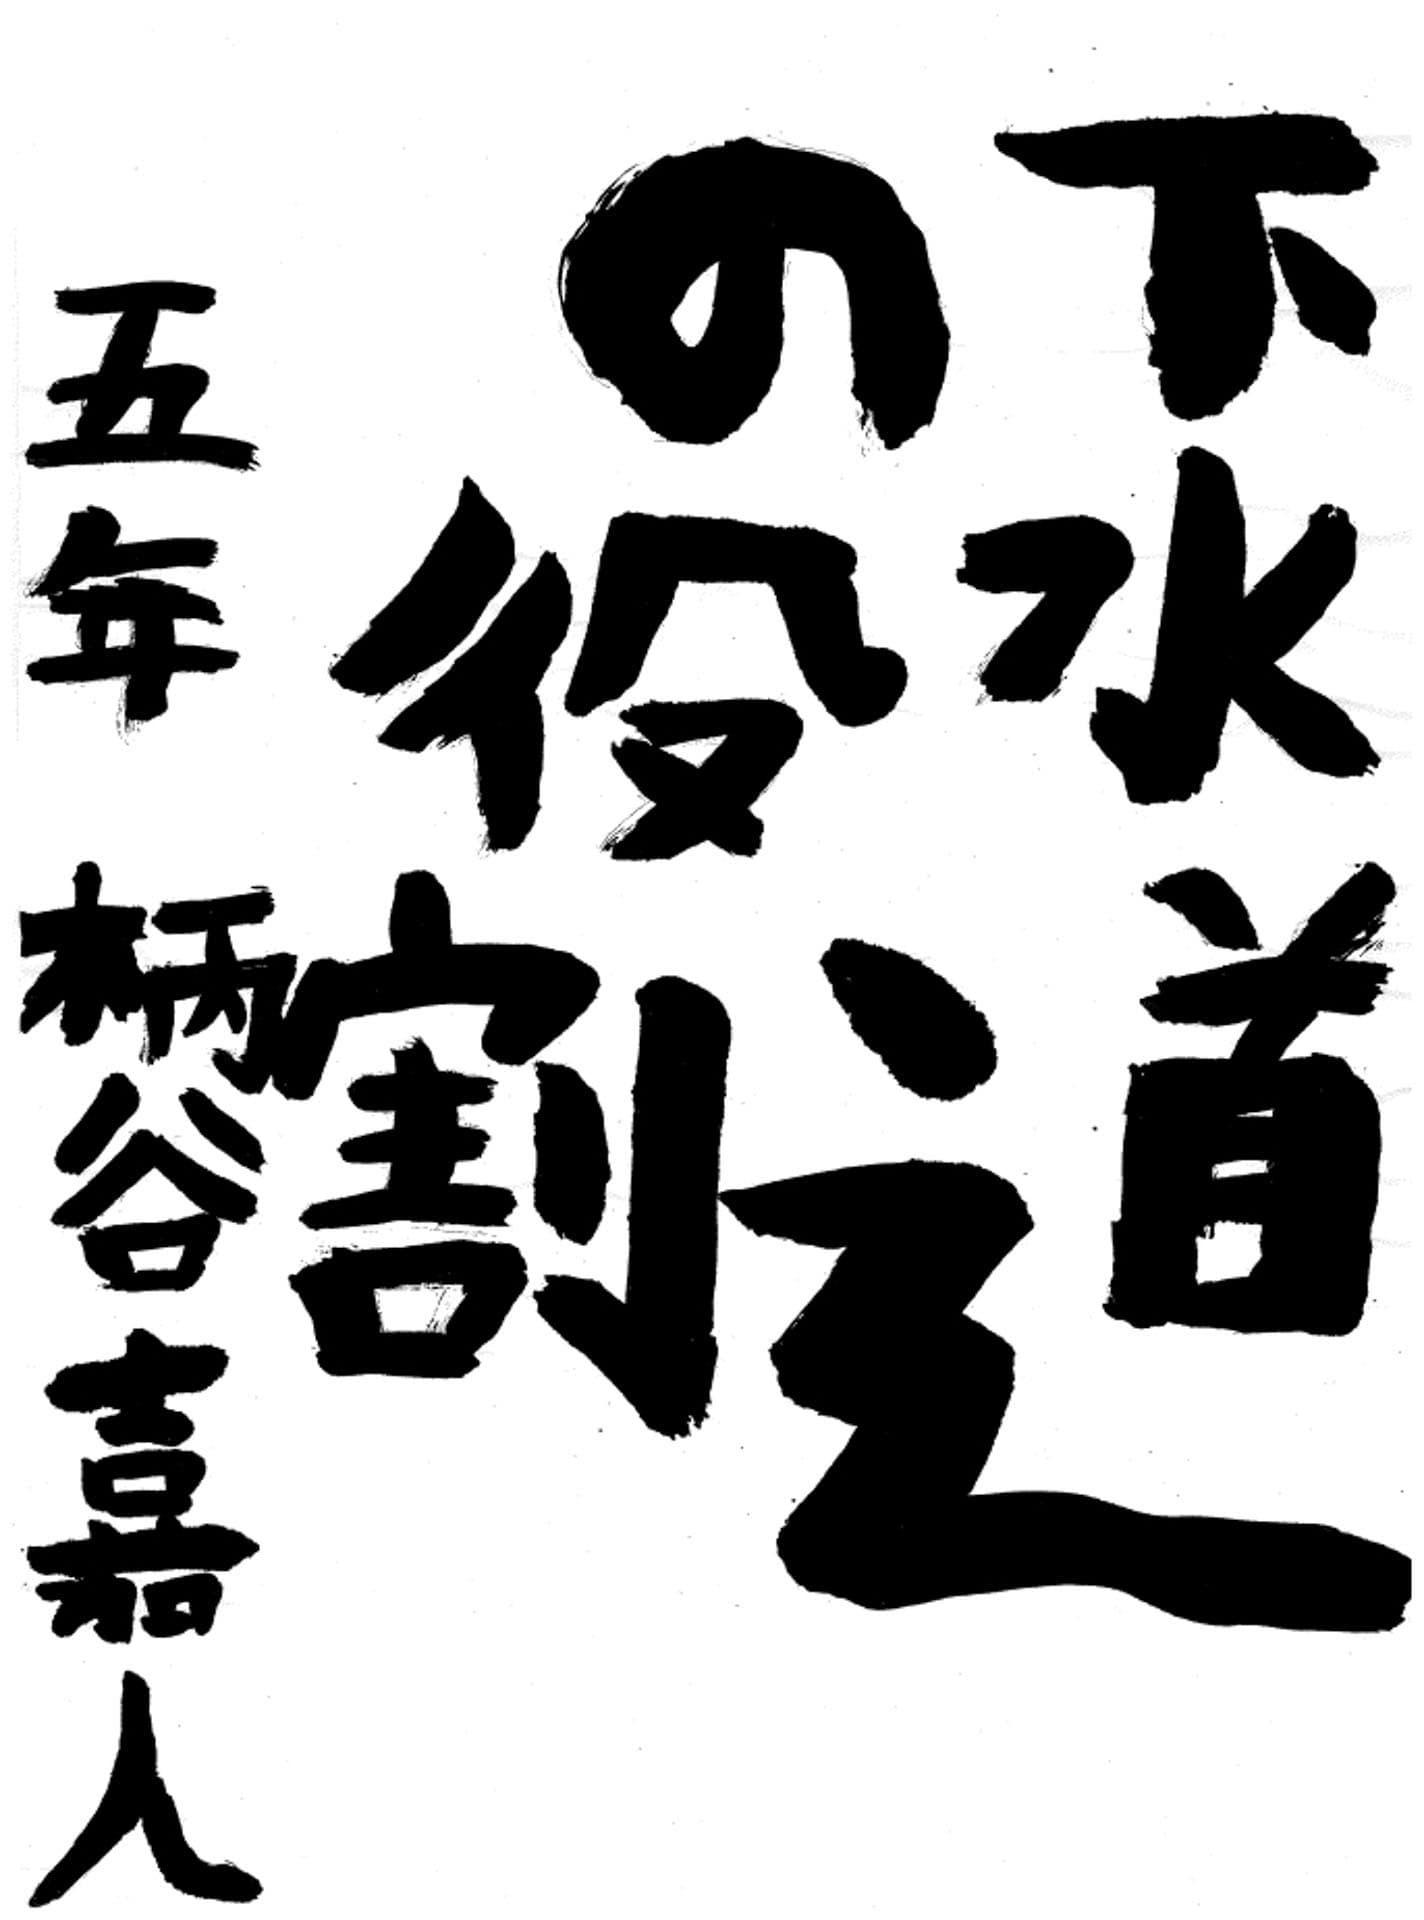 下水道
の役割
五年 柄谷嘉人